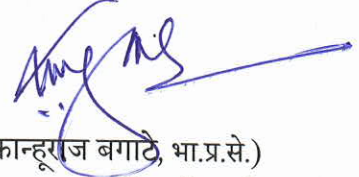 कान्हूराज बगाटे, भा.प्र.से.)